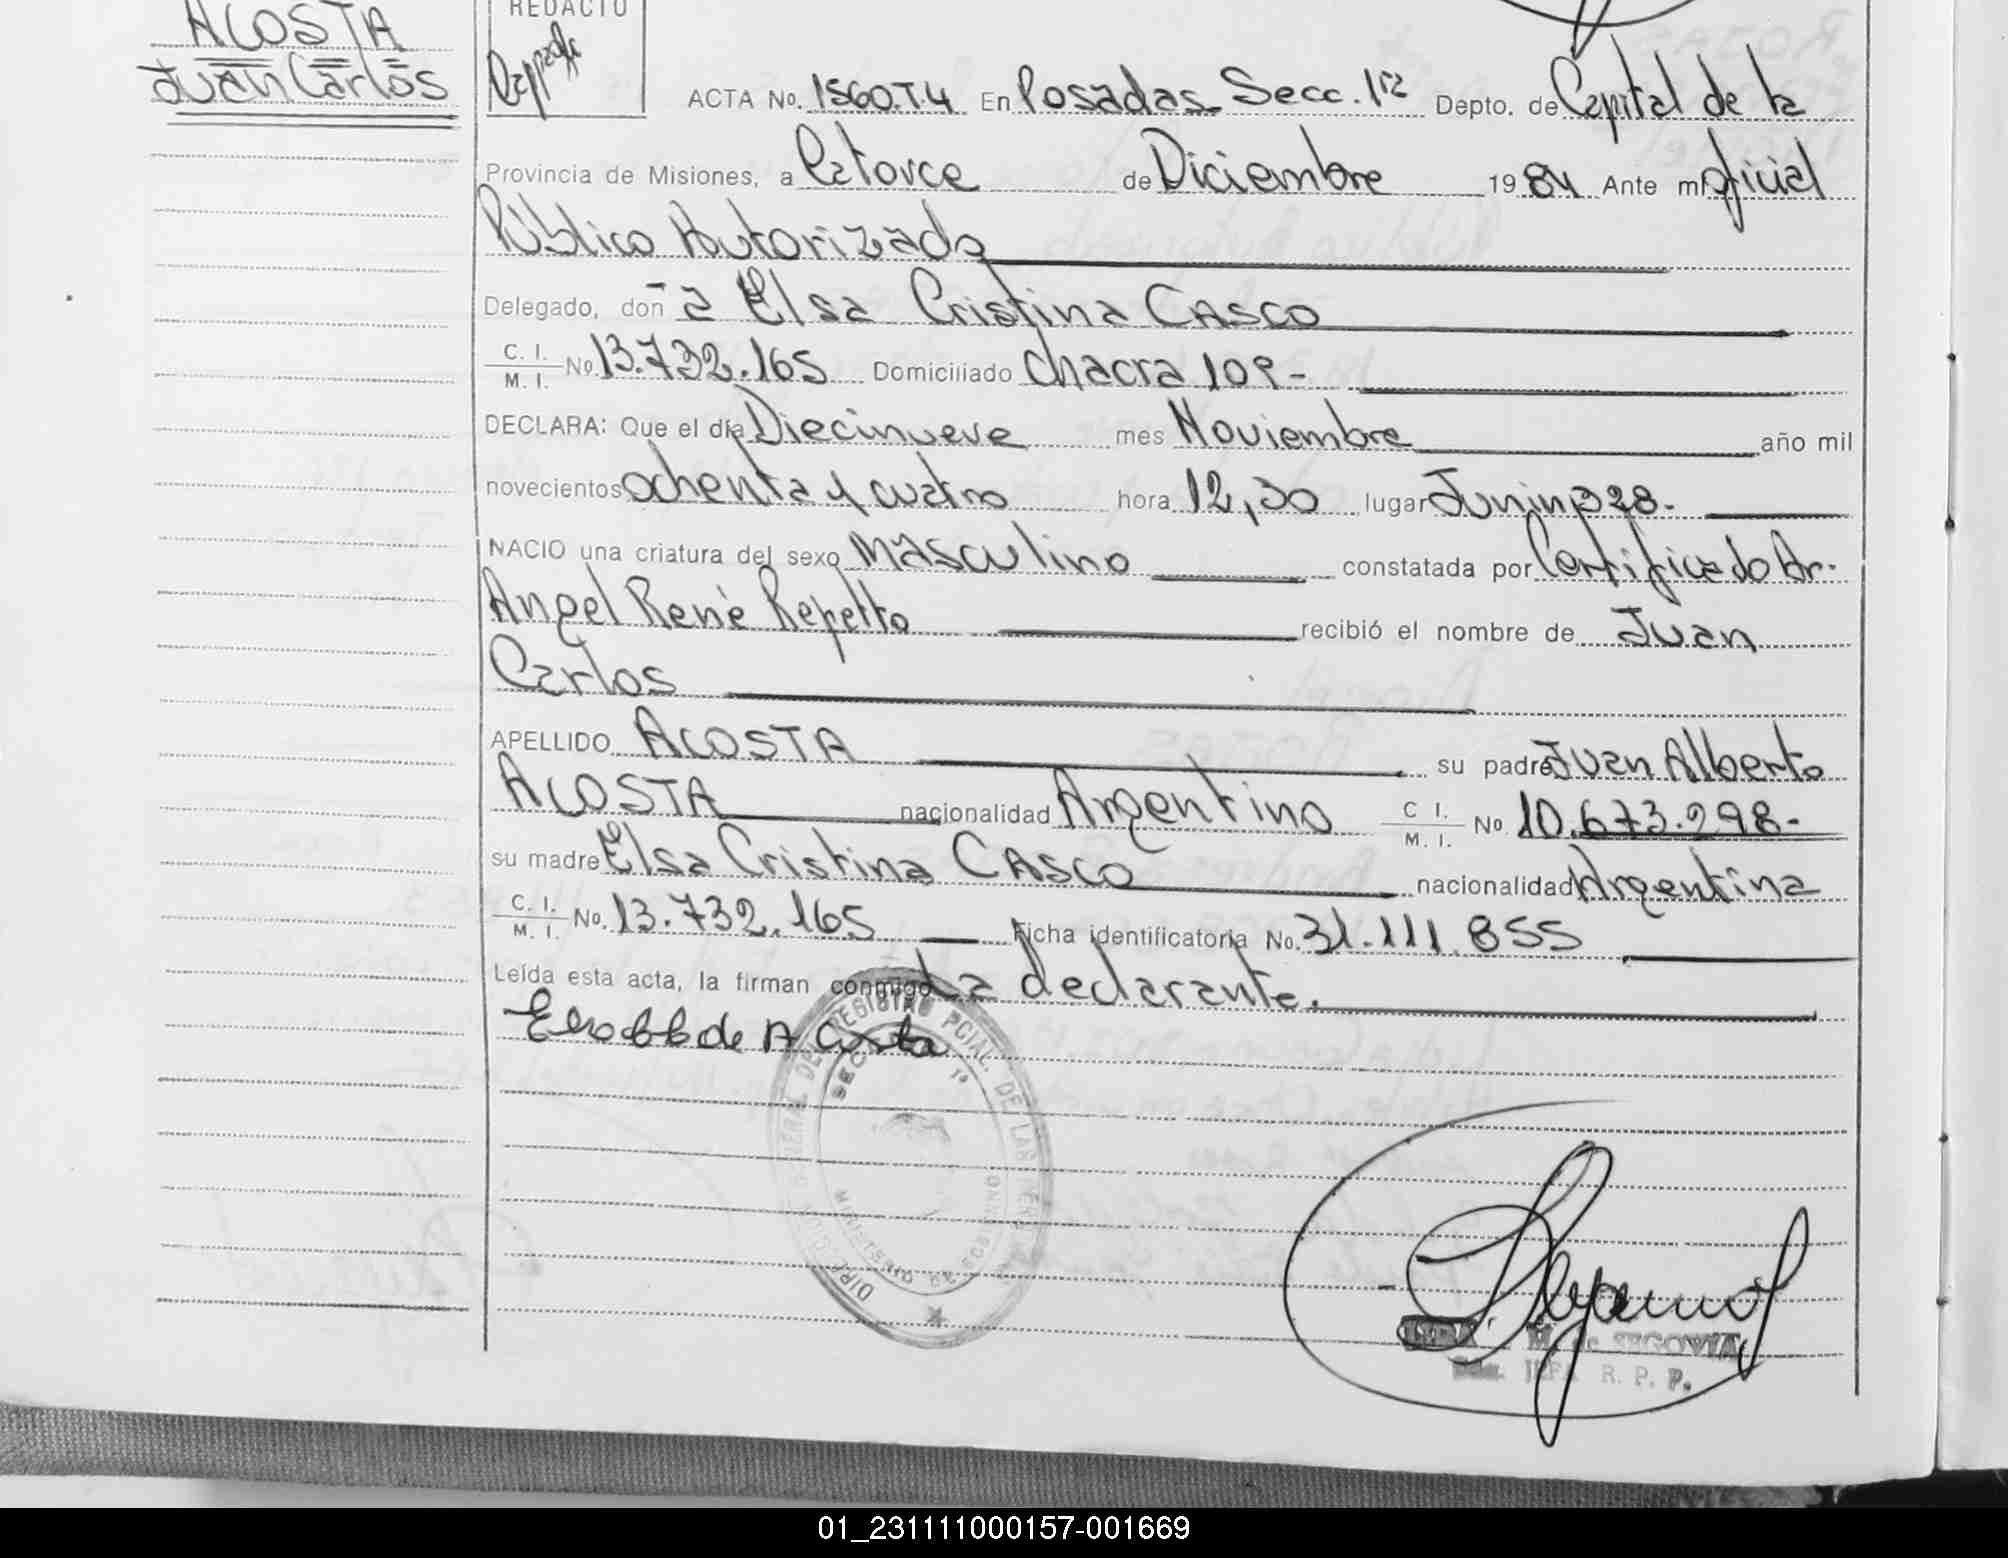 ACOSTA
Juan Carlos
REDACTO
ACTA No. 1560.T.4 En Posadas Secc. 1ra Depto. de Capital de la
Provincia de Misiones, a Catorce de Diciembre 1984 Ante mi oficial
Público Autorizado
Delegado, don a Elsa Cristina CASCO
C. I. / M. I. No. 13.732.165 Domiciliado Chacra 109-
DECLARA: Que el día Diecinueve mes Noviembre año mil
novecientos ochenta y cuatro hora 12,30 lugar Junin 328-
NACIO una criatura del sexo Masculino constatada por Certificado Dr.
Angel René Repetto recibió el nombre de Juan
Carlos
APELLIDO ACOSTA su padre Juan Alberto
ACOSTA nacionalidad Argentino C I. / M. I. No 10.673.298-
su madre Elsa Cristina CASCO nacionalidad Argentina
C. I. / M. I. No. 13.732.165 Ficha identificatoria No. 31.111.855
Leída esta acta, la firman conmigo La declarante.
de Acosta
DIRECCION GENERAL DEL REGISTRO PCIAL. DE LAS PERS
SECC 1ª
MINISTERIO DE GOBIERNO
M. de SEGOVIA
JEFA R. P. P.
01_231111000157-001669